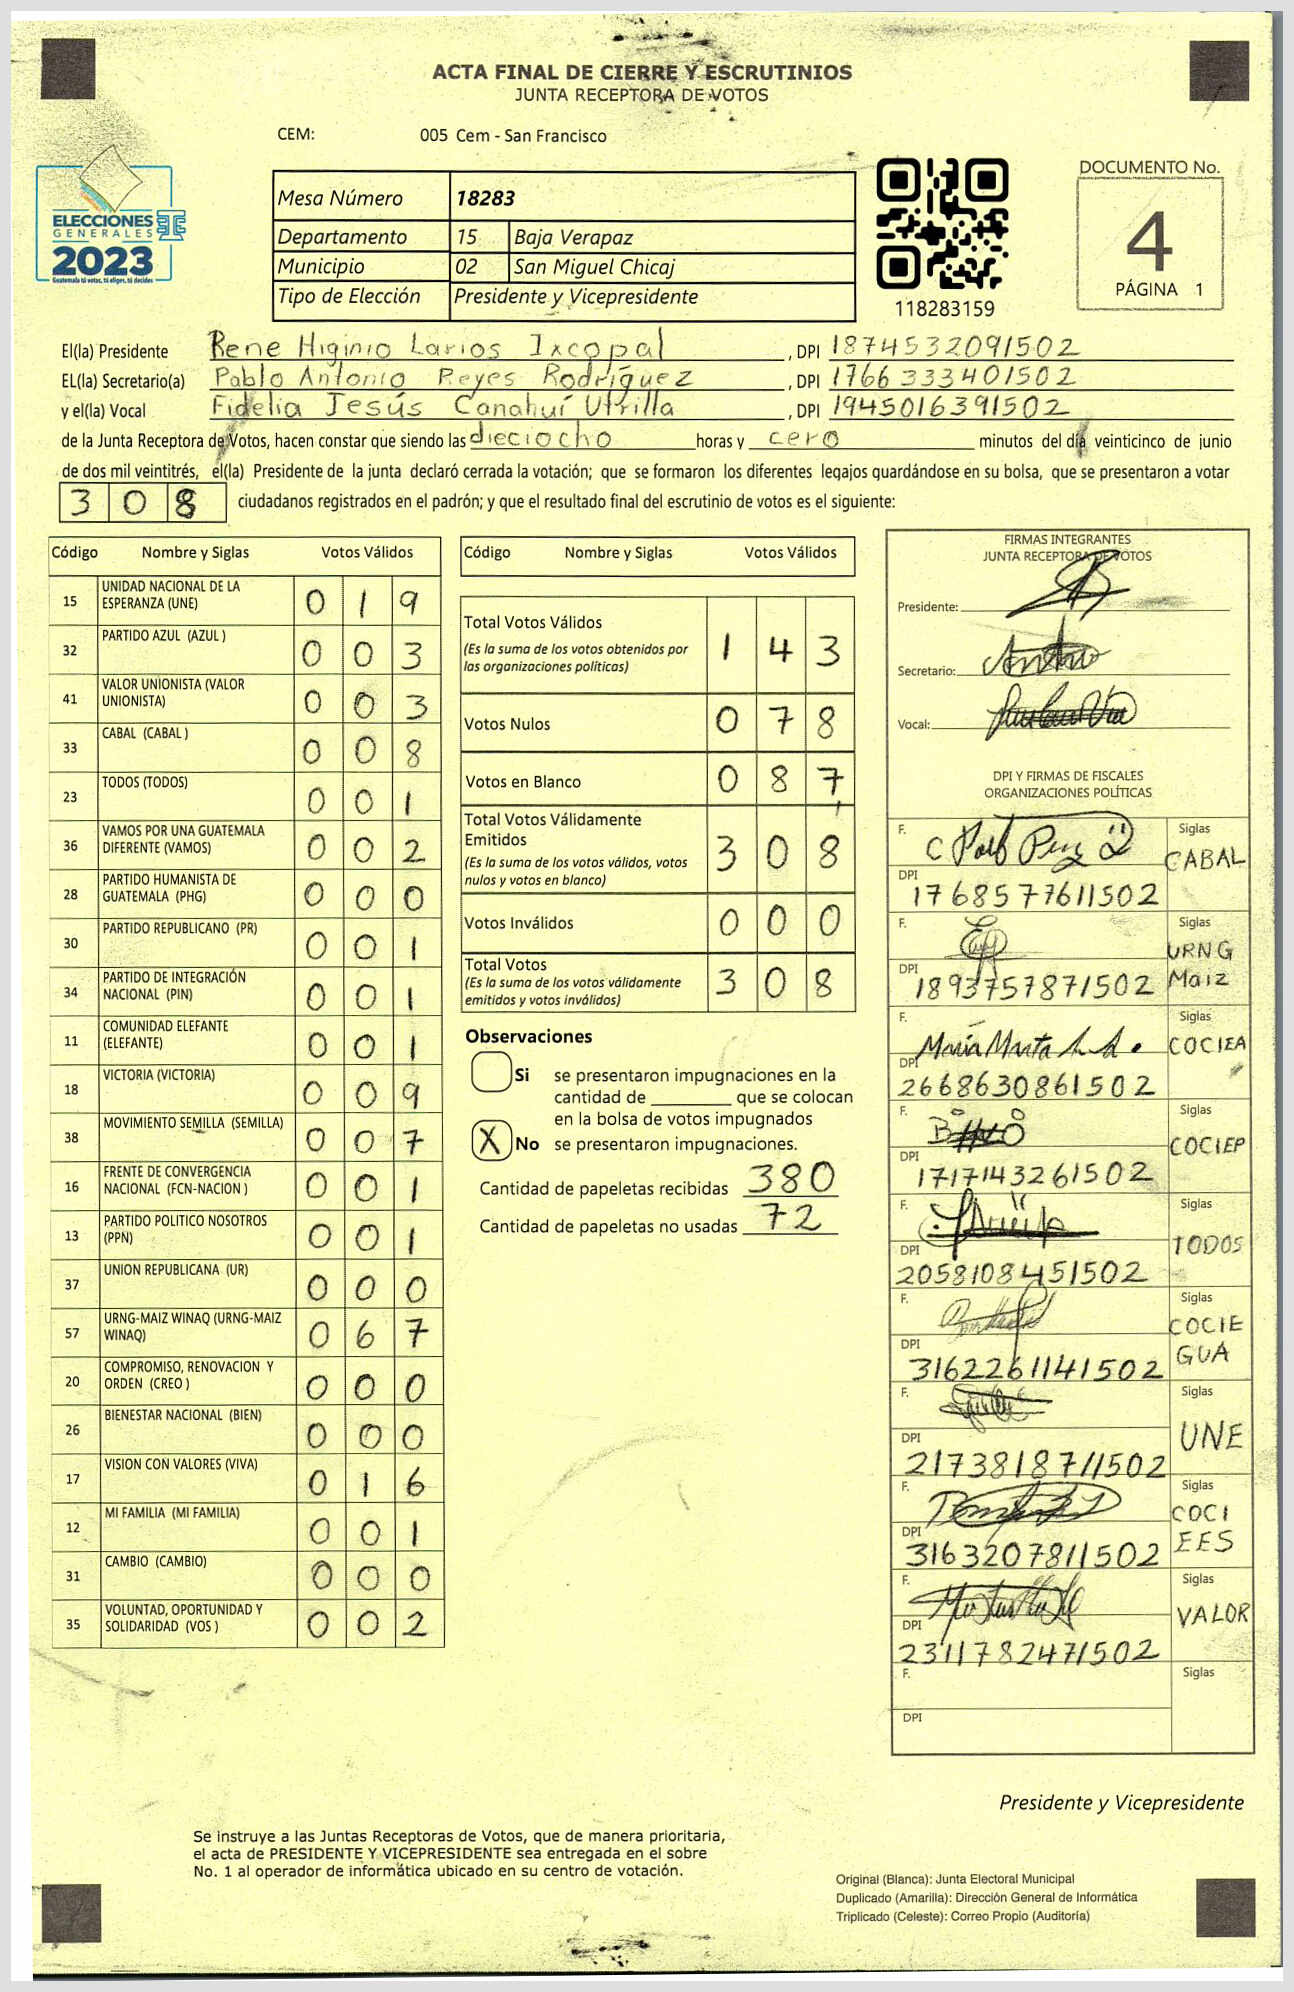 ACTA FINAL DE CIERRE Y ESCRUTINIOS
JUNTA RECEPTORA DE VOTOS
CEM: 005 Cem - San Francisco
ELECCIONES
GENERALES
2023
Guatemala tú votas, tú eliges, tú decides
Mesa Número 18283
Departamento 15 Baja Verapaz
Municipio 02 San Miguel Chicaj
Tipo de Elección Presidente y Vicepresidente
118283159
DOCUMENTO No.
4
PÁGINA 1
El(la) Presidente Rene Higinio Larios Ixcopal, DPI 1874532091502
EL(la) Secretario(a) Pablo Antonio Reyes Rodríguez, DPI 1766333401502
y el(la) Vocal Fidelia Jesús Canahuí Utrilla, DPI 1945016391502
de la Junta Receptora de Votos, hacen constar que siendo las dieciocho horas y cero minutos del día veinticinco de junio
de dos mil veintitrés, el(la) Presidente de la junta declaró cerrada la votación; que se formaron los diferentes legajos guardándose en su bolsa, que se presentaron a votar
308 ciudadanos registrados en el padrón; y que el resultado final del escrutinio de votos es el siguiente:
Código Nombre y Siglas Votos Válidos
15 UNIDAD NACIONAL DE LA ESPERANZA (UNE) 0 1 9
32 PARTIDO AZUL (AZUL ) 0 0 3
41 VALOR UNIONISTA (VALOR UNIONISTA) 0 0 3
33 CABAL (CABAL ) 0 0 8
23 TODOS (TODOS) 0 0 1
36 VAMOS POR UNA GUATEMALA DIFERENTE (VAMOS) 0 0 2
28 PARTIDO HUMANISTA DE GUATEMALA (PHG) 0 0 0
30 PARTIDO REPUBLICANO (PR) 0 0 1
34 PARTIDO DE INTEGRACIÓN NACIONAL (PIN) 0 0 1
11 COMUNIDAD ELEFANTE (ELEFANTE) 0 0 1
18 VICTORIA (VICTORIA) 0 0 9
38 MOVIMIENTO SEMILLA (SEMILLA) 0 0 7
16 FRENTE DE CONVERGENCIA NACIONAL (FCN-NACION ) 0 0 1
13 PARTIDO POLITICO NOSOTROS (PPN) 0 0 1
37 UNION REPUBLICANA (UR) 0 0 0
57 URNG-MAIZ WINAQ (URNG-MAIZ WINAQ) 0 6 7
20 COMPROMISO, RENOVACION Y ORDEN (CREO ) 0 0 0
26 BIENESTAR NACIONAL (BIEN) 0 0 0
17 VISION CON VALORES (VIVA) 0 1 6
12 MI FAMILIA (MI FAMILIA) 0 0 1
31 CAMBIO (CAMBIO) 0 0 0
35 VOLUNTAD, OPORTUNIDAD Y SOLIDARIDAD (VOS ) 0 0 2
Código Nombre y Siglas Votos Válidos
Total Votos Válidos 1 4 3
(Es la suma de los votos obtenidos por
las organizaciones políticas)
Votos Nulos 0 7 8
Votos en Blanco 0 8 7
Total Votos Válidamente
Emitidos 3 0 8
(Es la suma de los votos válidos, votos
nulos y votos en blanco)
Votos Inválidos 0 0 0
Total Votos 3 0 8
(Es la suma de los votos válidamente
emitidos y votos inválidos)
Observaciones
Si se presentaron impugnaciones en la
cantidad de ________ que se colocan
en la bolsa de votos impugnados
X No se presentaron impugnaciones.
Cantidad de papeletas recibidas 380
Cantidad de papeletas no usadas 72
FIRMAS INTEGRANTES
JUNTA RECEPTORA DE VOTOS
Presidente:
Secretario:
Vocal:
DPI Y FIRMAS DE FISCALES
ORGANIZACIONES POLÍTICAS
F. Siglas CABAL
DPI 1768577611502
F. Siglas URNG Maiz
DPI 1893757871502
F. María Marta Siglas COCIEA
DPI 2668630861502
F. Siglas COCIEP
DPI 1717143261502
F. Siglas TODOS
DPI 2058108451502
F. Siglas COCIE GUA
DPI 3162261141502
F. Siglas UNE
DPI 2173818711502
F. Siglas COCI EES
DPI 3163207811502
F. Siglas VALOR
DPI 2311782471502
F. Siglas
DPI
Presidente y Vicepresidente
Se instruye a las Juntas Receptoras de Votos, que de manera prioritaria,
el acta de PRESIDENTE Y VICEPRESIDENTE sea entregada en el sobre
No. 1 al operador de informática ubicado en su centro de votación.
Original (Blanca): Junta Electoral Municipal
Duplicado (Amarilla): Dirección General de Informática
Triplicado (Celeste): Correo Propio (Auditoría)